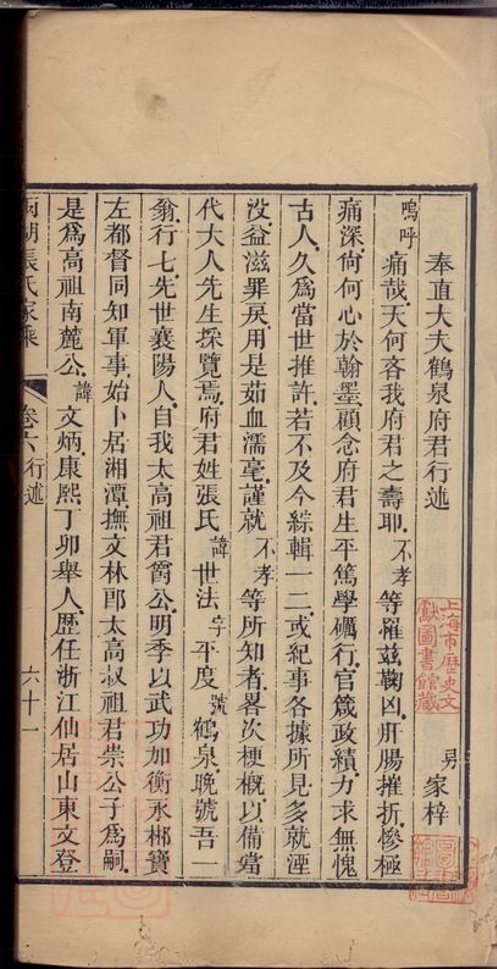 奉直大夫鶴泉府君行述
男 家梓
嗚呼痛哉天何吝我府君之壽耶不孝等罹茲鞠凶肝腸摧折慘極
痛深尙何心於翰墨顧念府君生平篤學礪行官箴政績力求無愧
古人久爲當世推許若不及今綜輯一二或紀事各據所見多就湮
沒益滋罪戾用是茹血濡毫謹就不孝等所知者畧次梗概以備當
代大人先生採覽焉府君姓張氏諱世法字平度號鶴泉晚號吾一
翁行七先世襄陽人自我太高祖君爵公明季以武功加衡永郴寶
左都督同知軍事始卜居湘潭撫文林郎太高叔祖君崇公子爲嗣
是爲高祖南麓公諱文炳康熙丁卯舉人歷任浙江仙居山東文登
湖張氏家乘
卷六行述
六十一
上海市歷史文
獻圖書館藏